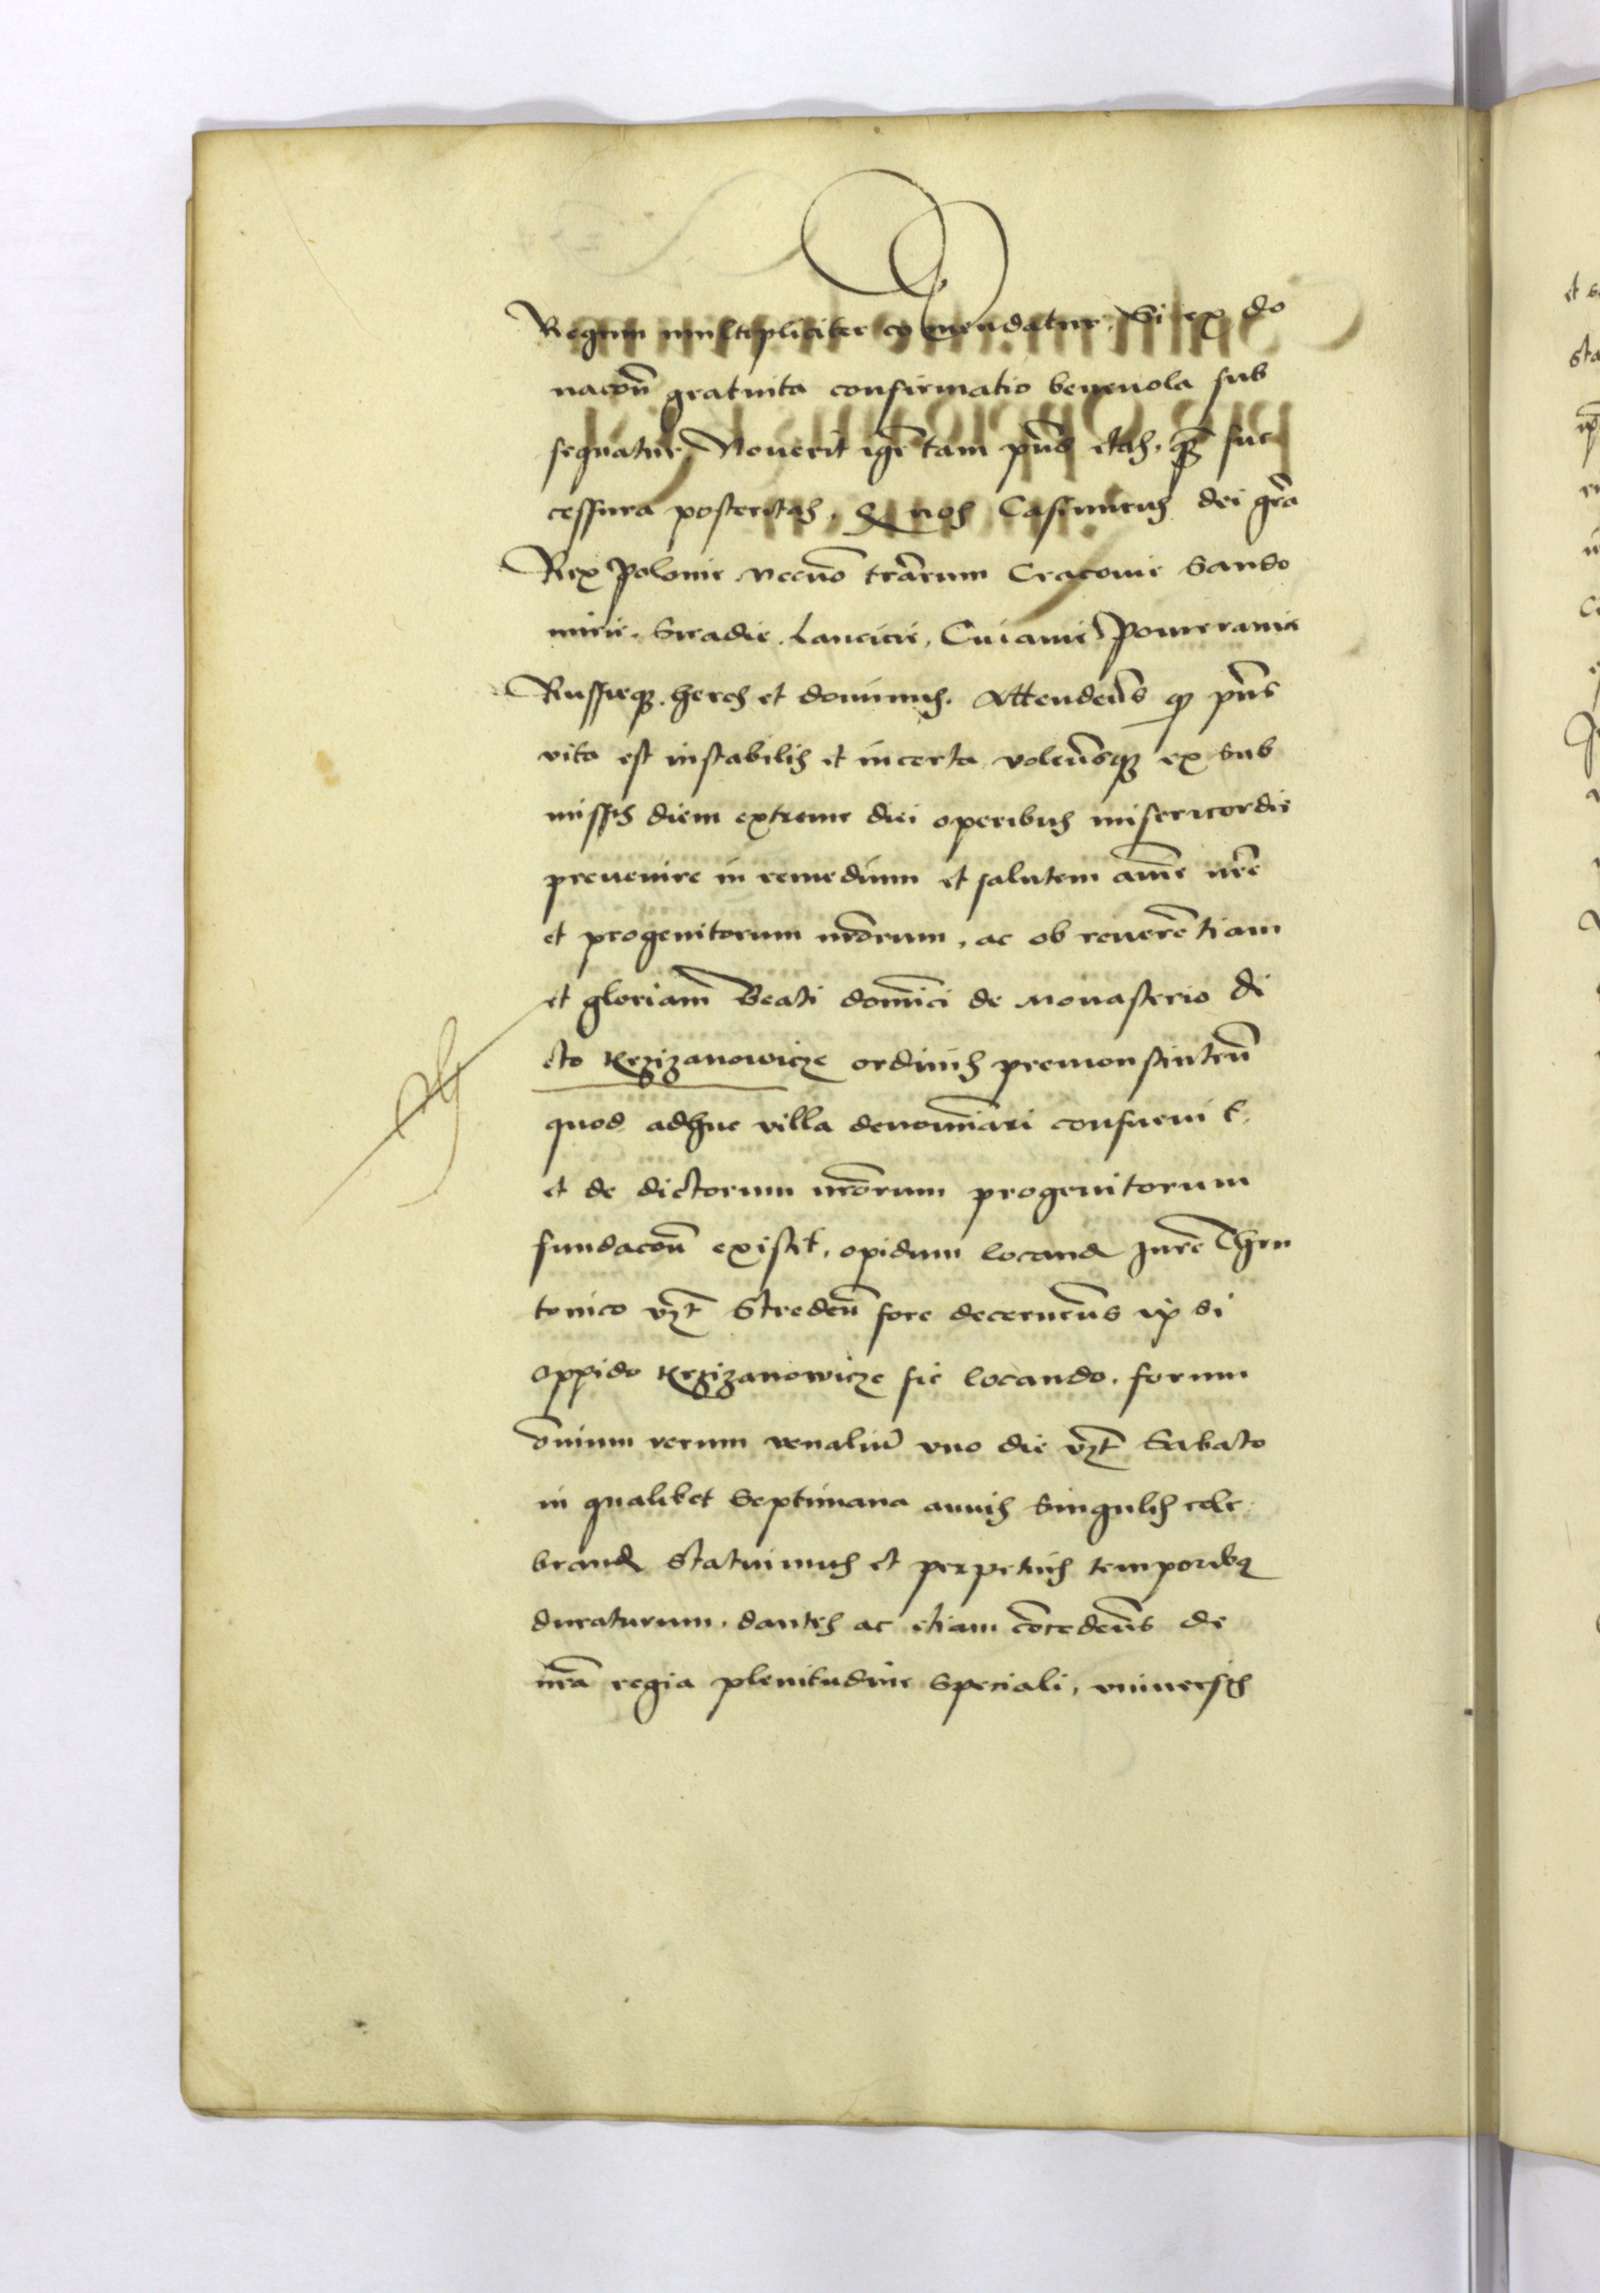 Regum multipliciter comendatur, Si ex do
nacoñ gratuita confirmatio beneuola sub
sequatur, Nouerit igr̃ tam pñs etas, q̃ suc
cessura posteritas, Q nos Casimirus dei gr̃a
Rex Polonie necno͂ tr̃arum Cracouie Sando
mirie, Siradie, Lancicie, Cuiauie Pomeranie
Russieq3, heres et dominus, Attendeñs q pñs
vita est instabilis et incerta, voleñsq3 ex sub
missis diem extreme diei operibus misericordie
preuenire in remedium et salutem aĩe nr̃e
et progenitorum nr̃orum, ac ob reuere͂tiam
et gloriam Beati domĩci de Monasterio di
cto Krzizanowicze ordinis premonstratẽn
quod adhuc villa denomĩari consueuit
et de dictorum nr̃orum progenitorum
fundacoñ existit, opidum locand Jure Theu
tonico vzt Stredeñ fore decerneñs ip si
oppido Krzizanowicze sic locando, forum
õnium rerum venaliũ vno die vzt Sabato
in qualibet Septimana annis singulis cele
brand Statuimus et perpetuis temporib9
duraturum, dantes ac etiam co͂cedeñs de
nr̃a regia plenitudine speciali, vniuersis